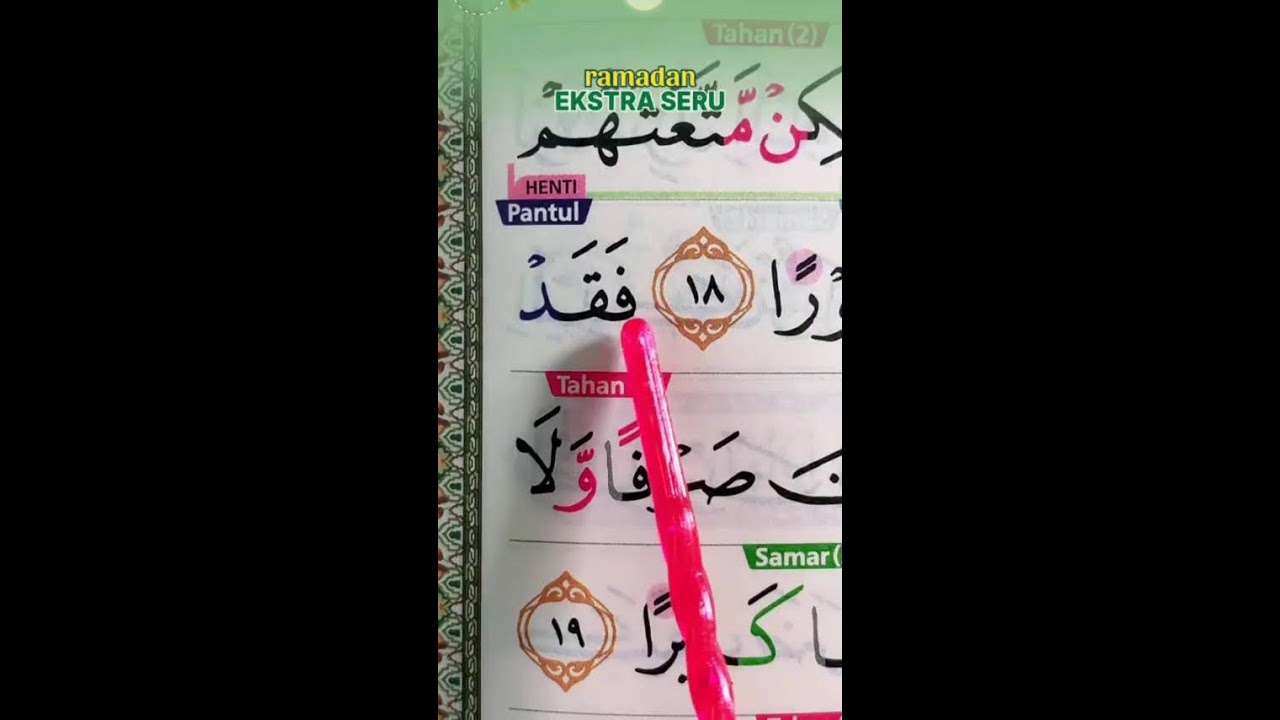 Tahan (2)
ramadan
EKSTRA SERU
كِنْ مَّتَّعْتَهُمْ
HENTI
Pantul
وْرًا ١٨ فَقَدْ
Tahan
نَ صَرْفًا وَّلَا
Samar (
كَ
بِرًا ١٩